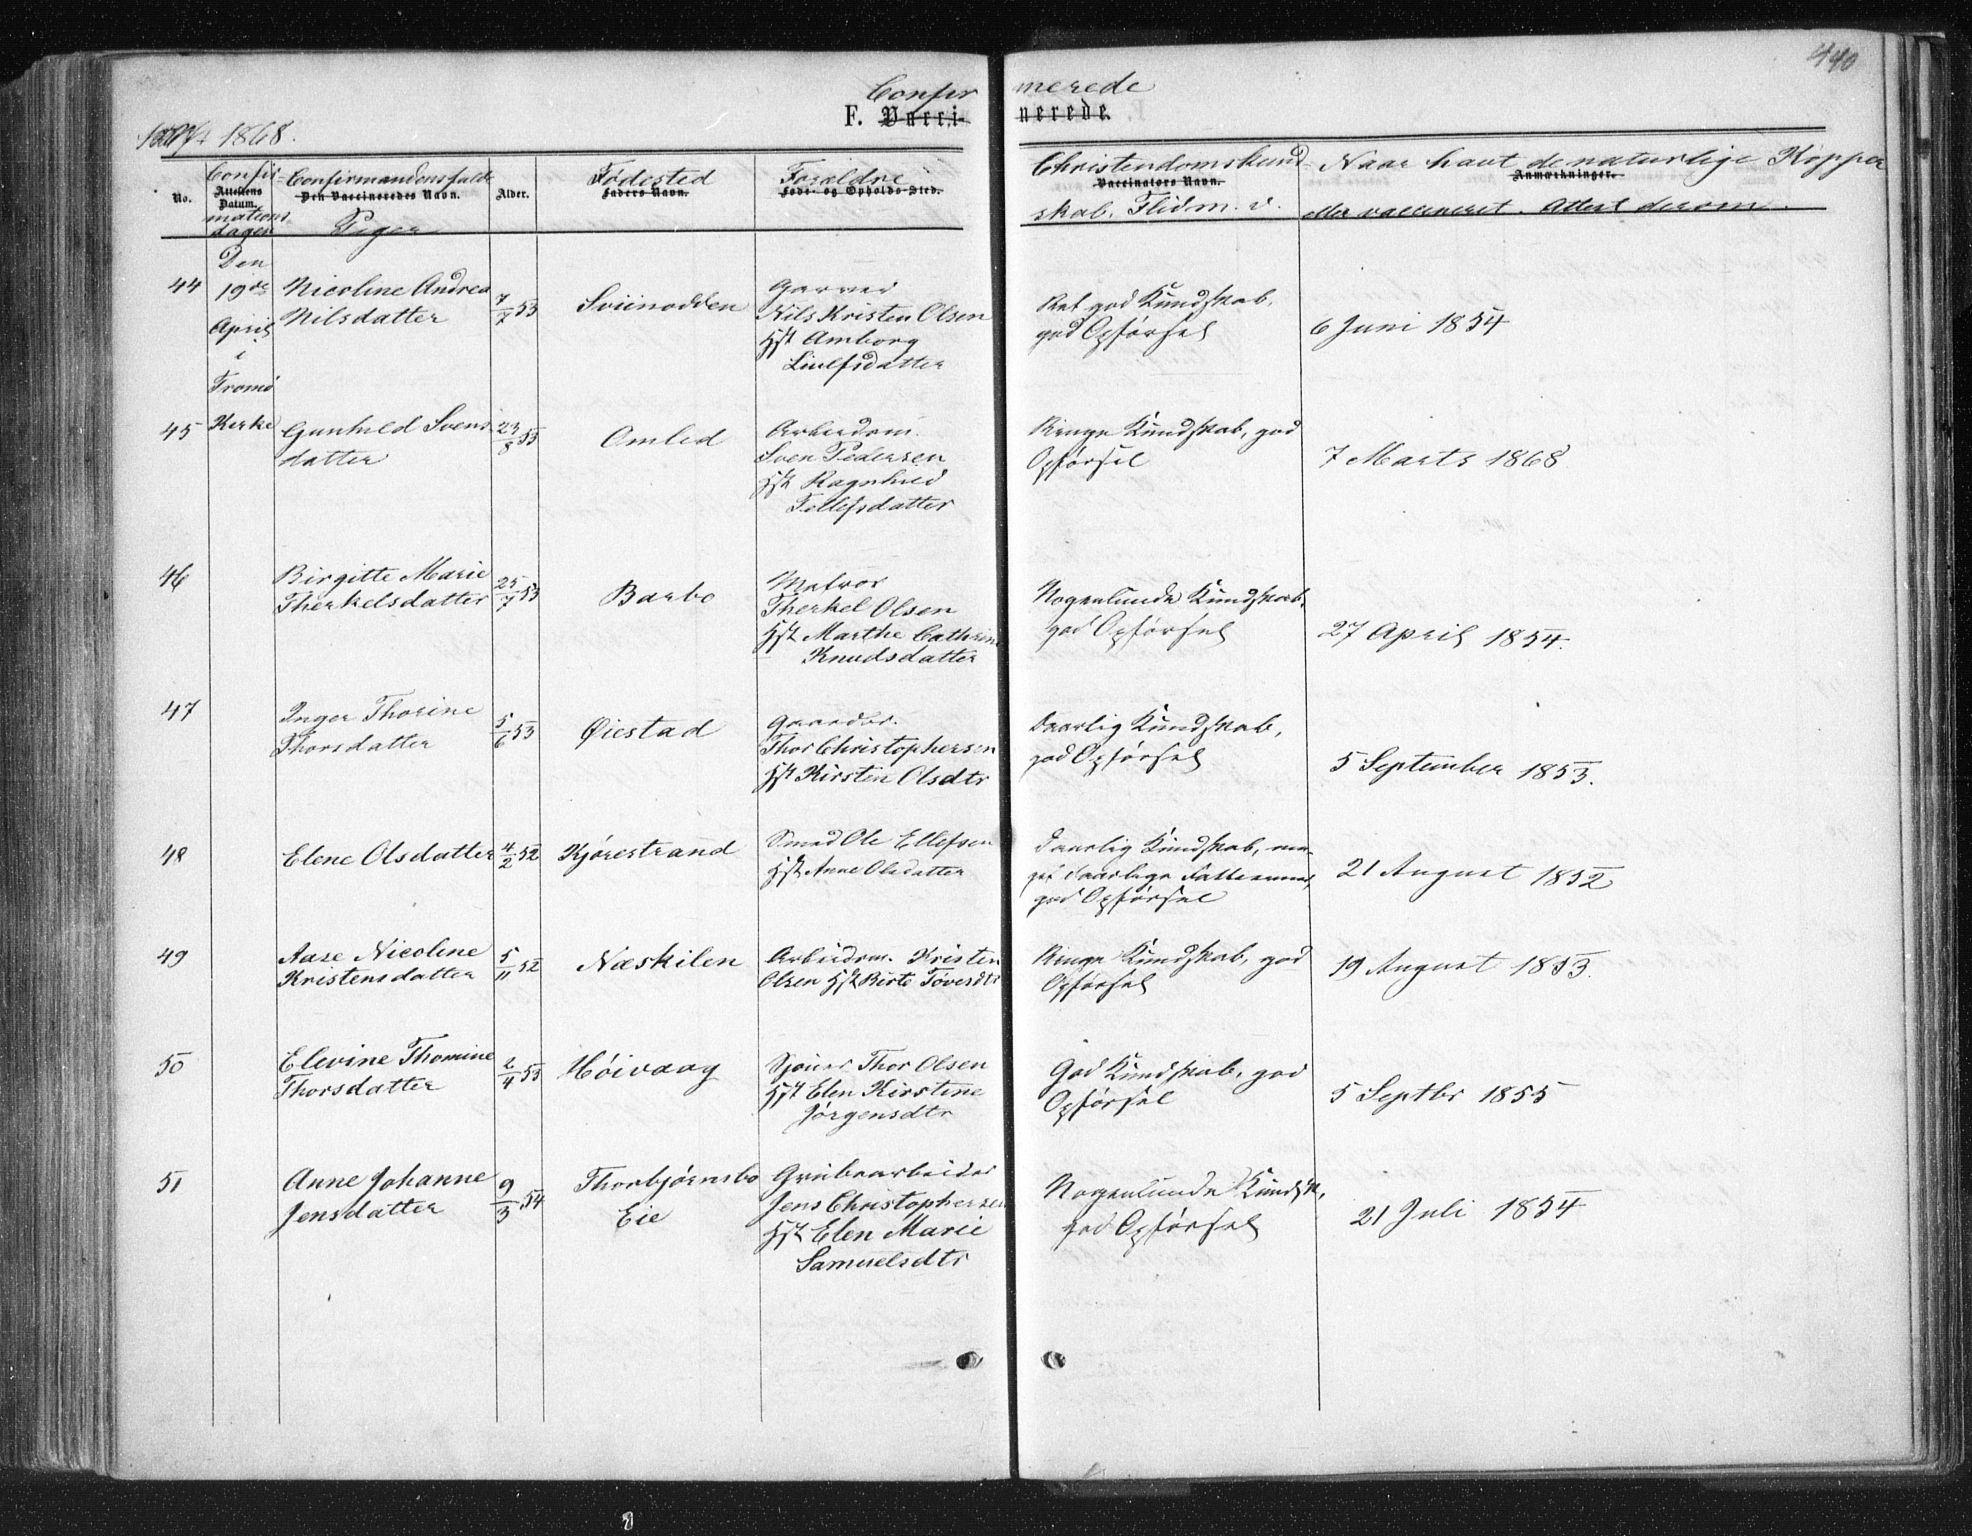 440
Confir merede
F. Vacci- nerede.
1868.
No.
Confir
Attestens
Datum.
mations
dagen
Confirmandens fulde
Den Vaccineredes Navn.
Piger
Alder.
Fødested
Faders Navn.
Forældre
Føde- og Opholds-Sted.
Christendomskund-
Vaccinators Navn.
skab, Flid m. v.
Naar havt de naturlige Kopper
Anmærkninger.
eller vaccineret. Attest derom.
Den
19de
April
i
Tromø
Kirke
44
Nicoline Andrea
Nilsdatter
7/7 53
Sviinodden
Garver
Nils Kristen Olsen
Hst Amborg
Liulfsdatter
Ret god Kundskab,
god Opførsel
6 Juni 1854
45
Gunhild Svens
datter
23/8 53
Omlid
Arbeidsm.
Sven Pedersen
Hst Ragnhild
Tellefsdatter
Ringe Kundskab, god
Opførsel
7 Marts 1868
46
Birgitte Marie
Therkelsdatter
25/7 53
Barbo
Matros
Therkel Olsen
Hst Marthe Cathrine
Knudsdatter
Nogenlunde Kundskab,
god Opførsel
27 April 1854.
47
Inger Thorine
Thorsdatter
5/6 53
Øiestad
Gaardbr.
Thor Christophersen
Hst Kirsten Olsdtr
Daarlig Kundskab,
god Opførsel
5 September 1853.
48
Elene Olsdatter
4/2 52
Kjørestrand
Smed Ole Ellefsen
Hst Anne Olsdatter
Daarlig Kundskab, me-
get daarlige Fatteevner,
god Opførsel
21 August 1852
49
Aase Nicoline
Kristensdatter
5/11 52
Næskilen
Arbeidsm. Kristen
Olsen Hst Birte Tovesdtr
Ringe Kundskab, god
Opførsel
19 August 1853.
50
Elevine Thomine
Thorsdatter
2/4 53
Høivaag
Thor Olsen
Hst Elen Kirstine
Jørgensdtr
God Kundskab, god
Opførsel
5 Septbr 1855
51
Anne Johanne
Jensdatter
9/3 54
Thorbjørnsbo
Eie
Grubearbeider
Jens Christophersen
Hst Elen Marie
Samuelsdtr
Nogenlunde Kundsk,
god Opførsel
21 Juli 1854